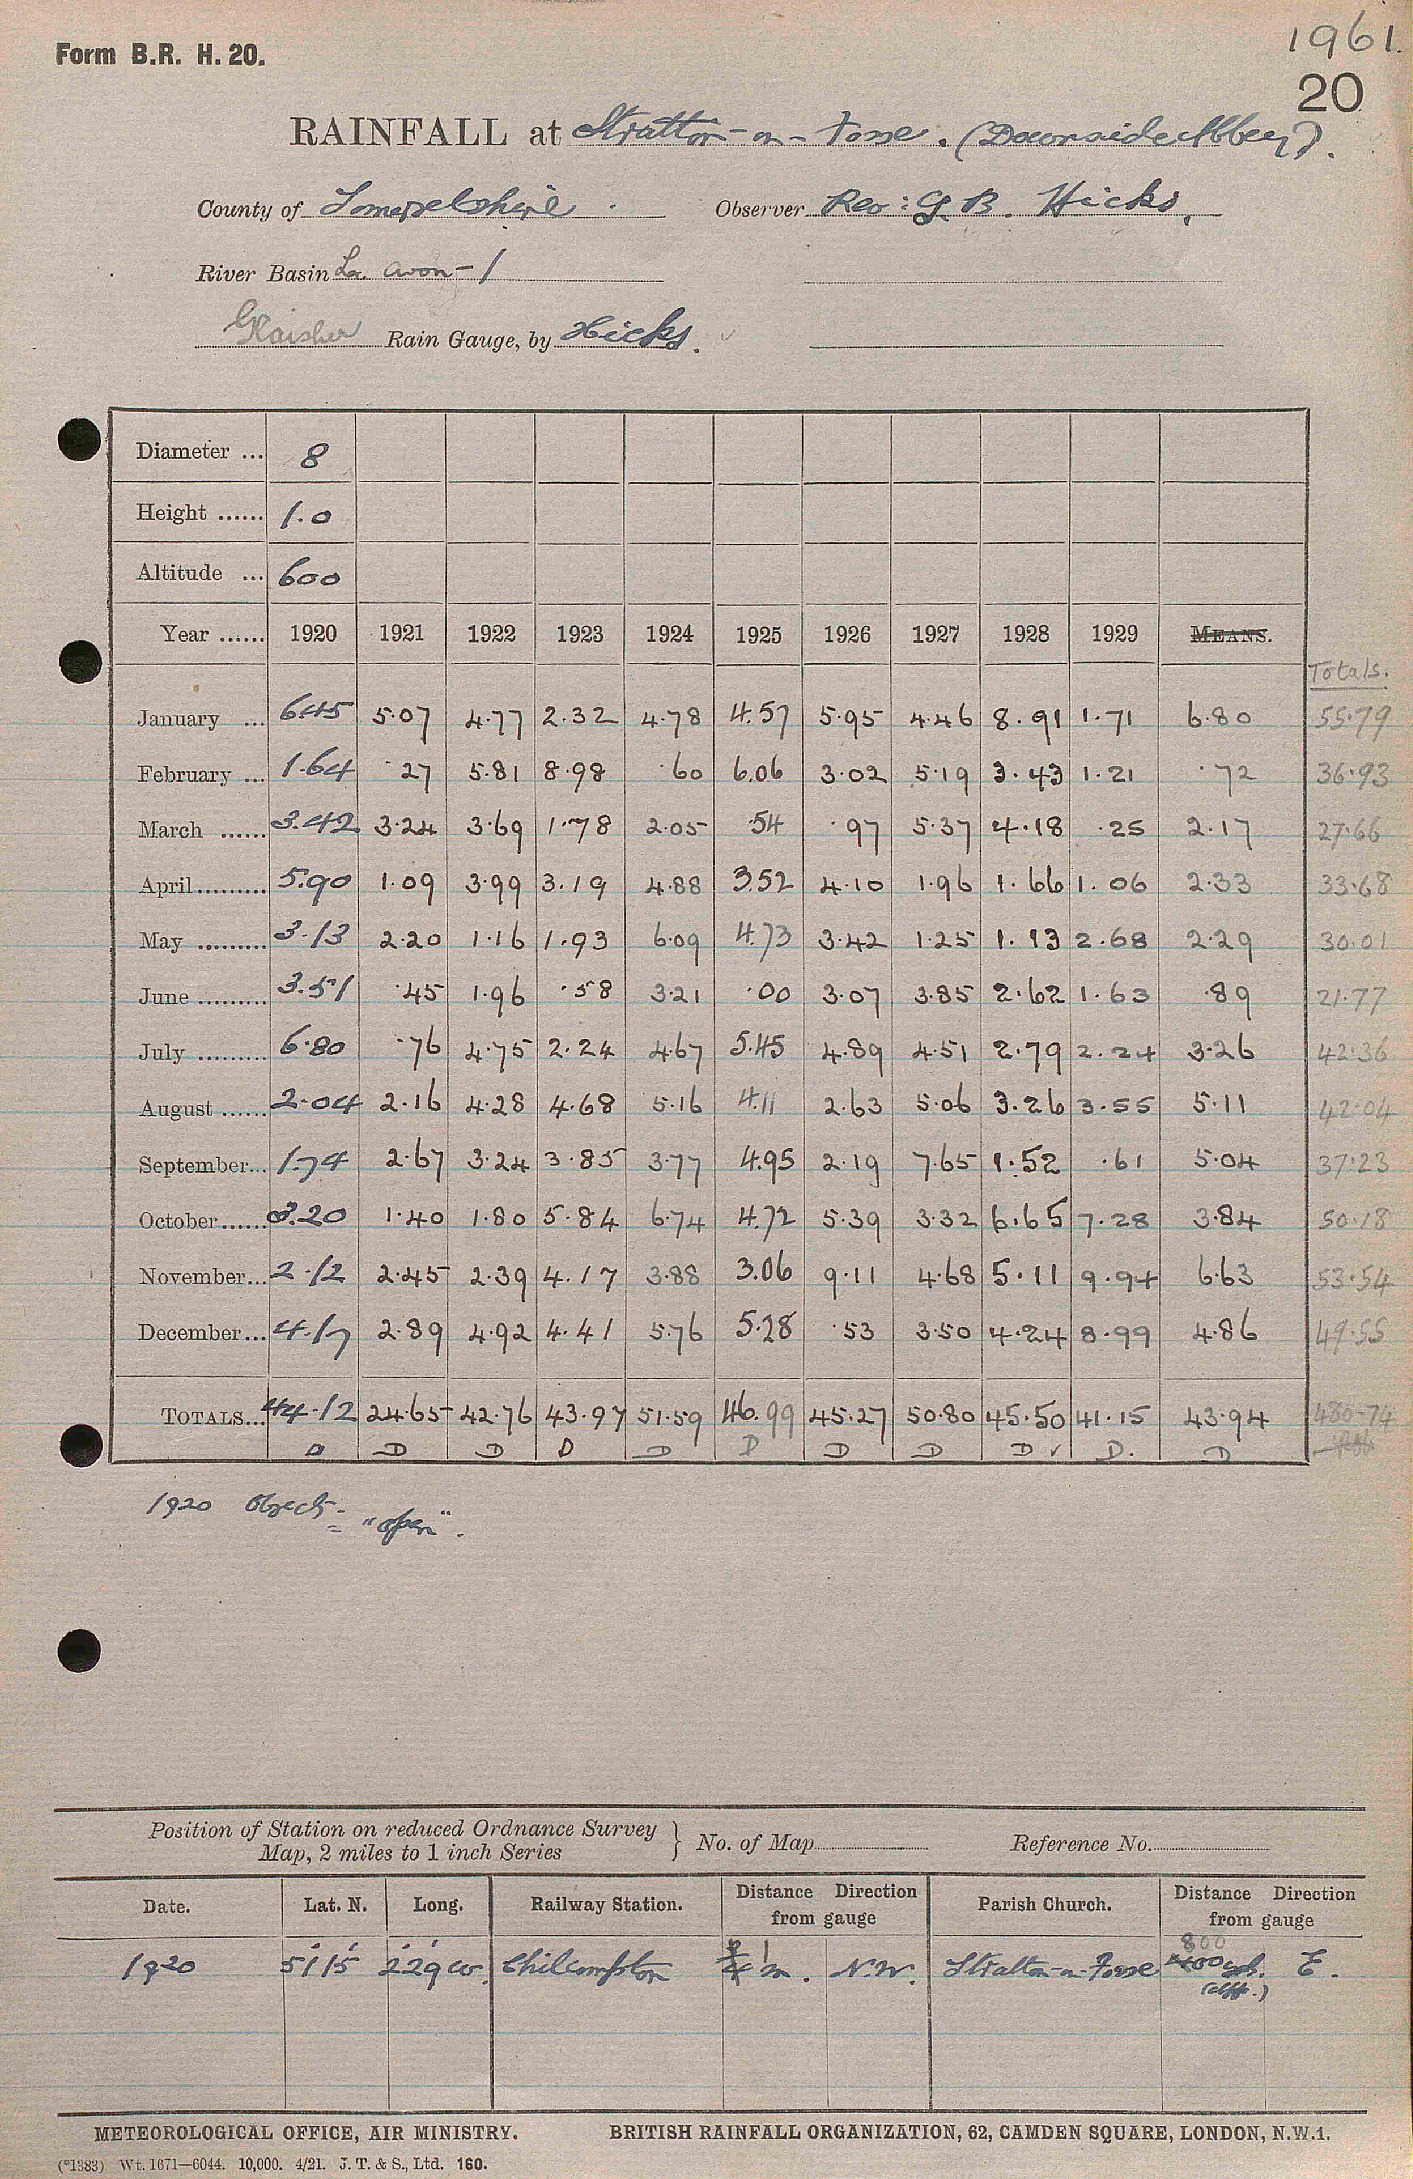 1961.
Form B.R. H. 20.
20
RAINFALL at Stratton-on-Fosse. (Downside Abbey).
County of Somersetshire. Observer Rev: G. B. Hicks.
River Basin Avon - 1
Glaisher Rain Gauge, by Hicks.
Diameter ... 8
Height ...... 1.0
Altitude ... 600
Year ...... 1920 1921 1922 1923 1924 1925 1926 1927 1928 1929 MEANS.
Totals.
January ... 6.45 5.07 4.77 2.32 4.78 4.57 5.95 4.46 8.91 1.71 6.80 55.79
February ... 1.64 .27 5.81 8.98 .60 6.06 3.02 5.19 3.43 1.21 .72 36.93
March ...... 3.42 3.24 3.69 1.78 2.05 .54 .97 5.37 4.18 .25 2.17 27.66
April ......... 5.90 1.09 3.99 3.19 4.88 3.52 4.10 1.96 1.66 1.06 2.33 33.68
May ......... 3.13 2.20 1.16 1.93 6.09 4.73 3.42 1.25 1.13 2.68 2.29 30.01
June ......... 3.51 .45 1.96 .58 3.21 .00 3.07 3.85 2.62 1.63 .89 21.77
July ......... 6.80 .76 4.75 2.24 4.67 5.45 4.89 4.51 2.79 2.24 3.26 42.36
August ...... 2.04 2.16 4.28 4.68 5.16 4.11 2.63 5.06 3.26 3.55 5.11 42.04
September... 1.74 2.67 3.24 3.85 3.77 4.95 2.19 7.65 1.52 .61 5.04 37.23
October...... 3.20 1.40 1.80 5.84 6.74 4.72 5.39 3.32 6.65 7.28 3.84 50.18
November... 2.12 2.45 2.39 4.17 3.88 3.06 9.11 4.68 5.11 9.94 6.63 53.54
December... 4.17 2.89 4.92 4.41 5.76 5.28 .53 3.50 4.24 8.99 4.86 49.55
TOTALS... 44.12 24.65 42.76 43.97 51.59 46.99 45.27 50.80 45.50 41.15 43.94 480.74
D D D D D D D D D ✓ D. D
1920 Object = "open".
Position of Station on reduced Ordnance Survey
Map, 2 miles to 1 inch Series } No. of Map Reference No.
Date. Lat. N. Long. Railway Station. Distance Direction from gauge Parish Church. Distance Direction from gauge
800
1920 51 15 2 29 W. Chilcompton 1 m. N.W. Stratton-on-Fosse 400 yds. E.
METEOROLOGICAL OFFICE, AIR MINISTRY. BRITISH RAINFALL ORGANIZATION, 62, CAMDEN SQUARE, LONDON, N.W.1.
(*1383) Wt. 1671—6044. 10,000. 4/21. J. T. & S., Ltd. 160.